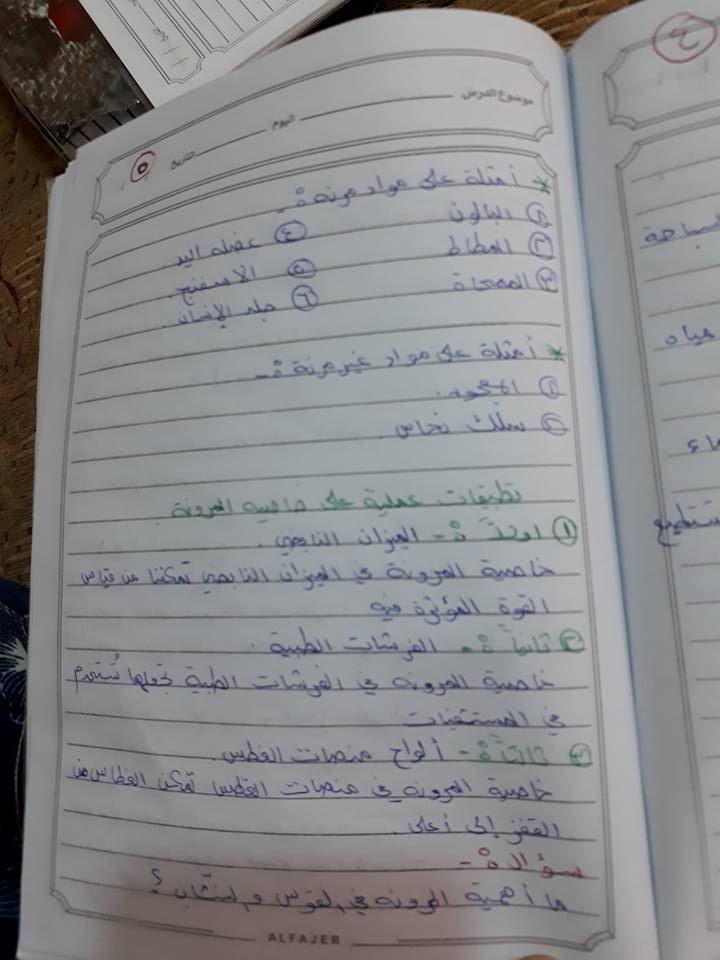 موضوع الدرس اليوم التاريخ ٥
* أمثلة على مواد مرنة :-
١ البالون ٤ عضلة اليد
٢ المطاط ٥ الاسفنج
٣ الممحاة ٦ جلد الإنسان .
* أمثلة على مواد غير مرنة :-
١
٢ سلك نحاس .
تطبيقات عملية على خاصية المرونة .
١ اولاً :- الميزان النابضي .
خاصية المرونة في الميزان النابضي تمكننا من قياس
القوة المؤثرة فيه
٢ ثانياً :- الفرشات الطبية .
خاصية المرونة في الفرشات الطبية تجعلها تُستخدم
في المستشفيات
٣ ثالثاً :- ألواح منصات الغطس .
خاصية المرونة في منصات الغطس تمكن الغطاس من
القفز إلى أعلى .
سؤال :-
ما أهمية المرونة في القوس و النشّاب ؟
ALFAJER
٤
السباحة
مياه
تستطيع